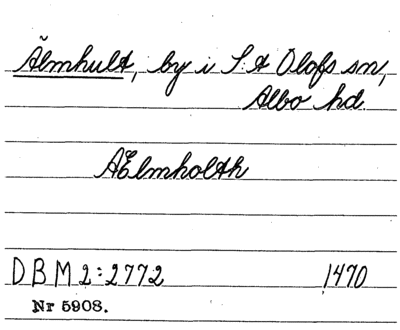 Älmhult, by i S:t Olofs sn,
Albo hd.
AElmholth
DBM 2:2772 1470
Nr 5908.